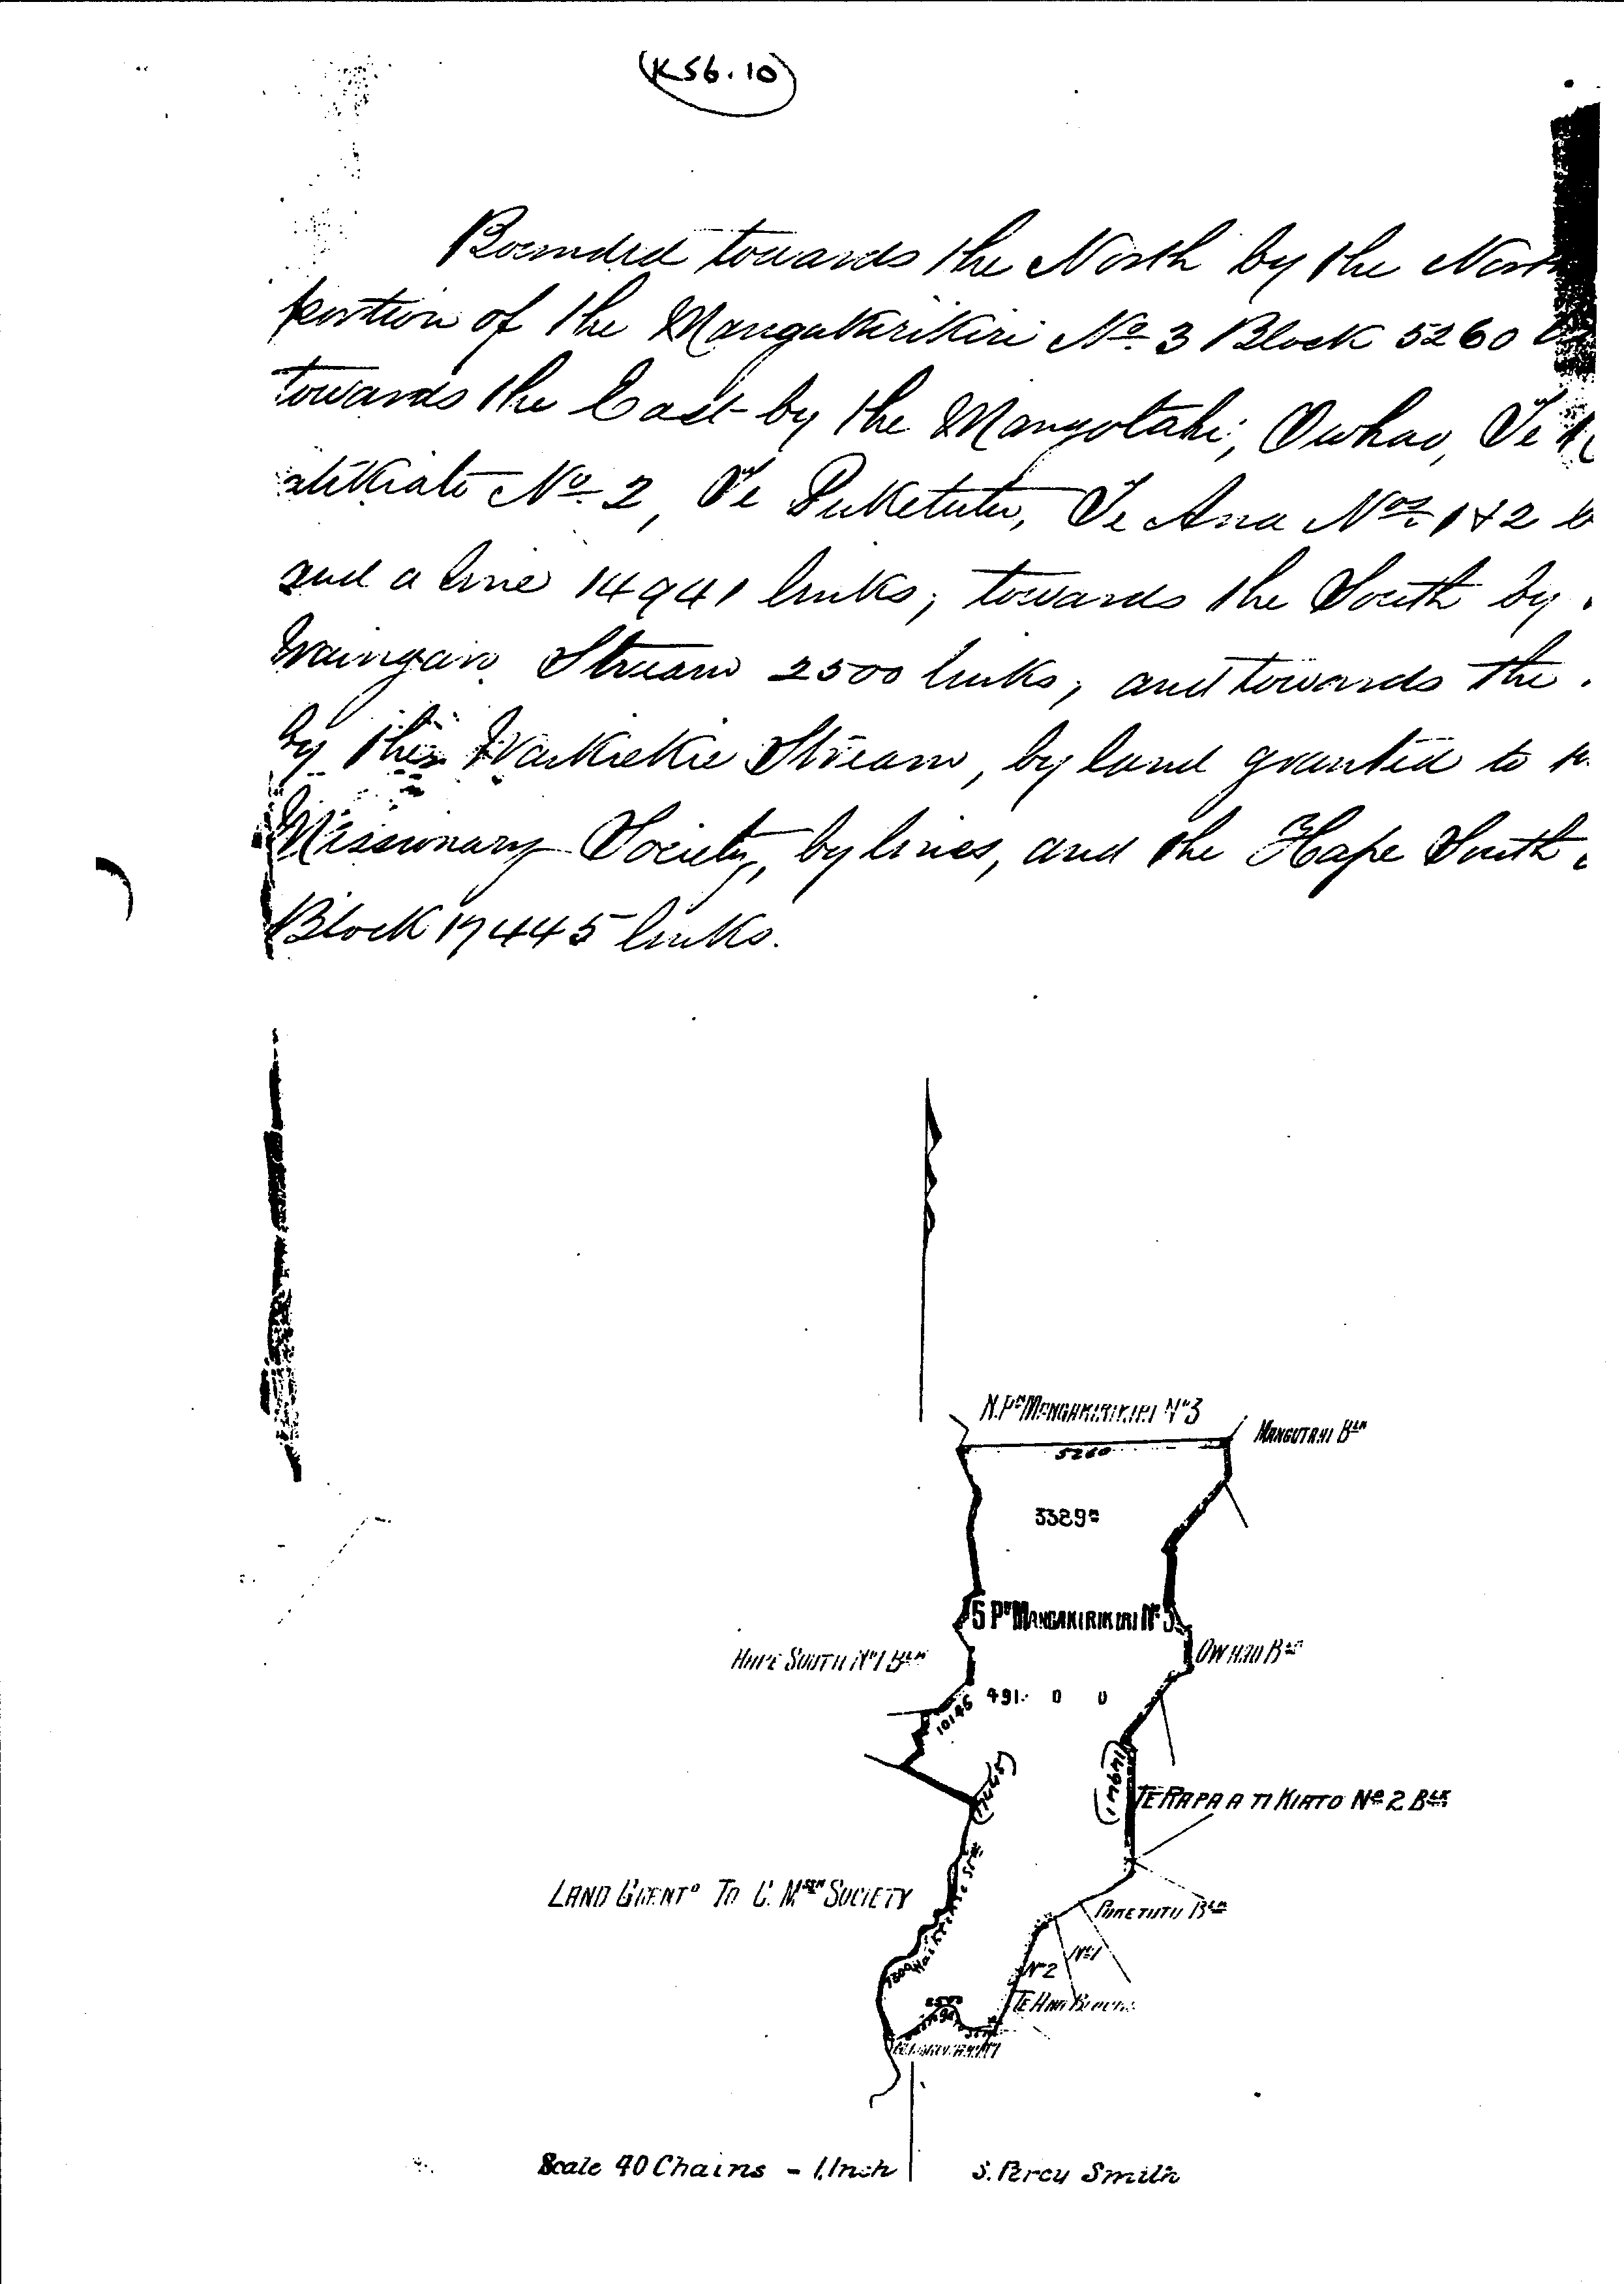 (K56.10)
Bounded towards the North by the North
portion of the Mangakirikiri No. 3 Block 5260
towards the East by the Mangotahi, Owhao, Te
atikiato No. 2, Te Puketutu, Te Ana Nos. 1 & 2
and a line 14941 links; towards the South by
Waingaro Stream 2500 links; and towards the
by the Waikiekie Stream, by land granted to
Missionary Society, by lines, and the Hape South
Block 17445 links.
N. Pn MANGAKIRIKIRI No 3
MANGUTAHI BLK
5260
3389
S Pn MANGAKIRIKIRI No 3
HAPE SOUTH No 1 BLK
OWHAO BLK
491. 0 0
10145
14941
TE RAPA A TI KIATO No 2 BLK
LAND GRENTD TO C. MSRY SOCIETY
PUKETUTU BLK
No 1
No 2
7300
2500
TE ANA BLOCKS
Scale 40 Chains - 1 Inch
S. Percy Smith